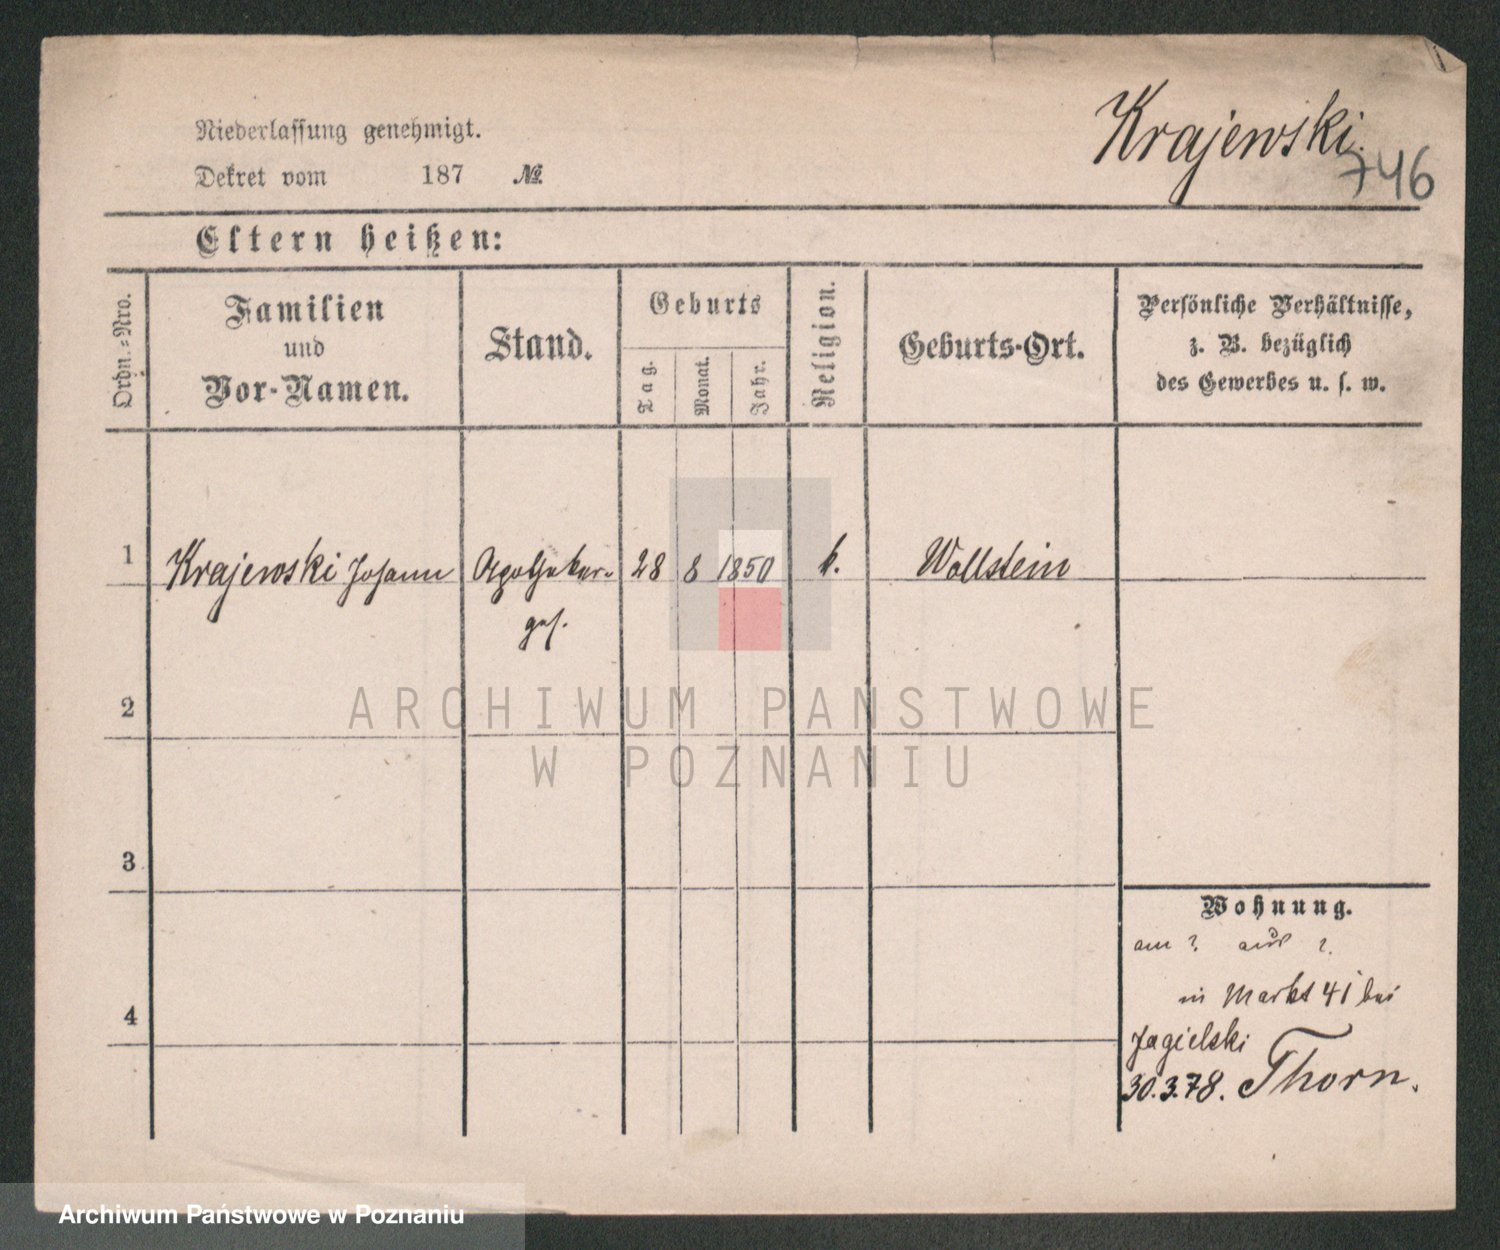 Krajewski.
746
Niederlassung genehmigt.
Dekret vom 187 №
Eltern heißen:
Ordn.-Nro.
Familien
und
Vor-Namen.
Stand.
Geburts
Tag.
Monat.
Jahr.
Religion.
Geburts-Ort.
Persönliche Verhältnisse,
z. B. bezüglich
des Gewerbes u. s. w.
1 Krajewski Johann Apotheker- 28 8 1850 k. Wollstein
geh.
2
3
4
Wohnung.
am ? aus ?.
in Markt 41 bei
Jagielski
30.3.78. Thorn.
ARCHIWUM PAŃSTWOWE
W POZNANIU
Archiwum Państwowe w Poznaniu